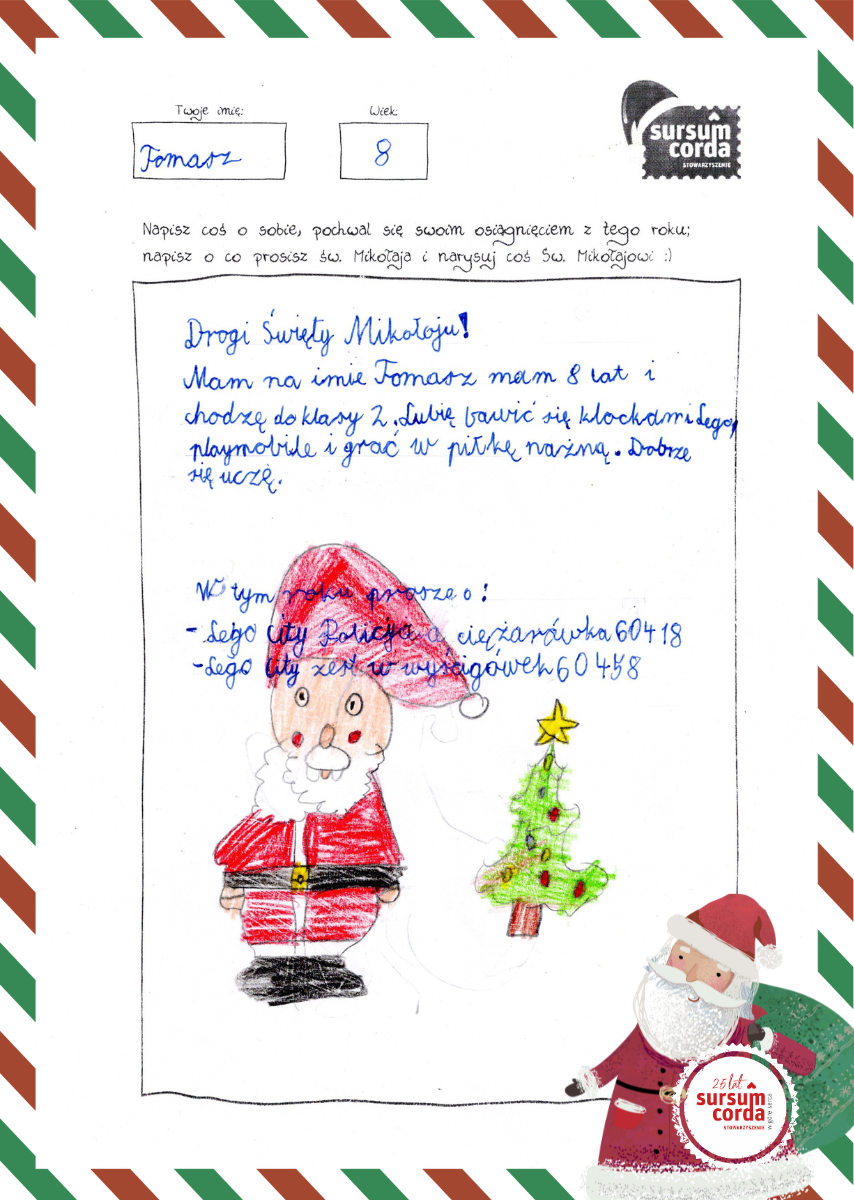 Twoje imię:
Wiek:
Tomasz
8
sursum corda
STOWARZYSZENIE
Napisz coś o sobie, pochwal się swoim osiągnięciem z tego roku;
napisz o co prosisz św. Mikołaja i narysuj coś Św. Mikołajowi :)
Drogi Święty Mikołoju!
Mam na imie Tomasz mam 8 lat i
chodzę do klasy 2. Lubię bawić się klockami Lego,
playmobile i grać w piłkę nażną. Dobrze
się uczę.
W tym roku prosze o:
- Lego City Policja a ciężarówka 60418
- Lego City zest w wyścigówek 60458
25 lat
sursum
corda
STOWARZYSZENIE